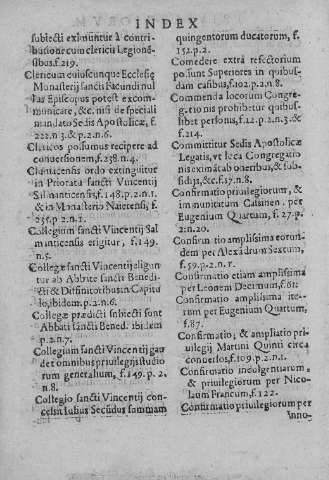 INDEX
subiecti eximuntur à contri-
butione cum clericis Legionē-
sibus.f.219.
Clericum cuiuscunque Ecclesię
Monasterij sancti Facundi nul
lus Episcopus potest excom-
municare, &c. nisi de speciali
mandato Sedis Apostolicæ, f.
222.n.3.& p.2.n.6.
Clericos possumus recipere ad
conuersionem,f.238.n.4.
Cluniacensis ordo extinguitur
in Prioratu sancti Vincentij
Salmanticensis,f.148.p.2.n.1.
& in Monasterio Naierensi, f.
255.p.2.n.1.
Collegium sancti Vincentij Sal
manticensis erigitur, f.149.
n.5.
Collegæ sancti Vincentij eligun
tur ab Abbate sancti Benedi-
cti & Diffinitoribus in Capitu
lo,ibidem.p.2.n.6.
Collegæ prædicti subiecti sunt
Abbati sancti Bened. ibidem
p.2.n.7.
Collegium sancti Vincentij gau
det omnibus priuilegijs studio
rum generalium, f.149.p.2.
n.8.
Collegio sancti Vincentij con-
cessit Iulius Secūdus summam
quingentorum ducatorum, f.
152.p.2.
Comedere extra refectorium
possunt Superiores in quibus-
dam casibus,f.102.p.2.n.8.
Commenda locorum Congre-
gationis prohibetur quibus-
libet personis,f.12.p.2.n.3.&
f.214.
Committitur Sedis Apostolicæ
Legatis, vt loca Congregatio
nis eximāt ab oneribus,& sub-
sidijs,&c.f.17.n.8.
Confirmatio priuilegiorum, &
immunitatum Cassinen. per
Eugenium Quartum, f.27.p.
2.n.20.
Confirmatio amplissima eorun-
dem per Alexādrum Sextum,
f.59.p.2.n.1.
Confirmatio etiam amplissima
per Leonem Decimum,f.61.
Confirmatio amplissima ite-
rum per Eugenium Quartum,
f.87.
Confirmatio; & ampliatio pri-
uilegij Martini Quinti circa
conuersos,f.109.p.2.n.1.
Confirmatio indulgentiarum,
& priuilegiorum per Nico-
laum Francum,f.122.
Confirmatio priuilegiorum per
Inno-